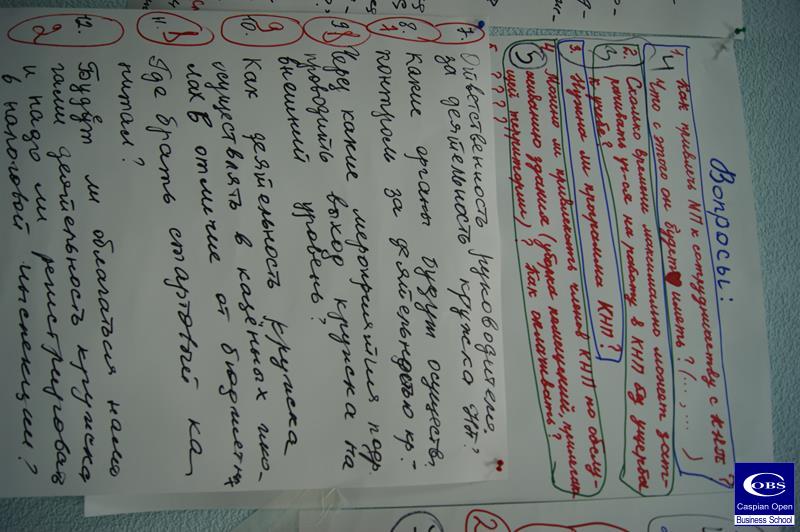 Вопросы:
1. Как привлечь МП к сотрудничеству с КНП?
4 Что с этого он будет иметь? (..., ... )
2. Сколько времени максимально может затра-
3 рачивать уч-ся на работу в КНП без ущерба
к учебе?
3. Нужна ли программа КНП?
4. Можно ли привлекать членов КНП по обслу-
5 живанию здания (уборка помещений, прилега-
щей территории)? Как оплачивать?
5. ? ? ? ?
7. Ответственность руководителя
за деятельность кружка
8. Какие органы будут осуществ.
7 контроль за деятельностью кр.-
9. Через какие мероприятия
8 проводить выход кружка на
внешний уровень?
10. Как деятельность кружка
9 осуществлять в казённых шко-
лах в отличие от бюджетных
11. Где брать стартовый ка-
питал?
12. Будут ли облагаться нало-
2 гами деятельность кружка
и надо ли регистрироваться
в налоговой инспекции?
COBS
Caspian Open
Business School